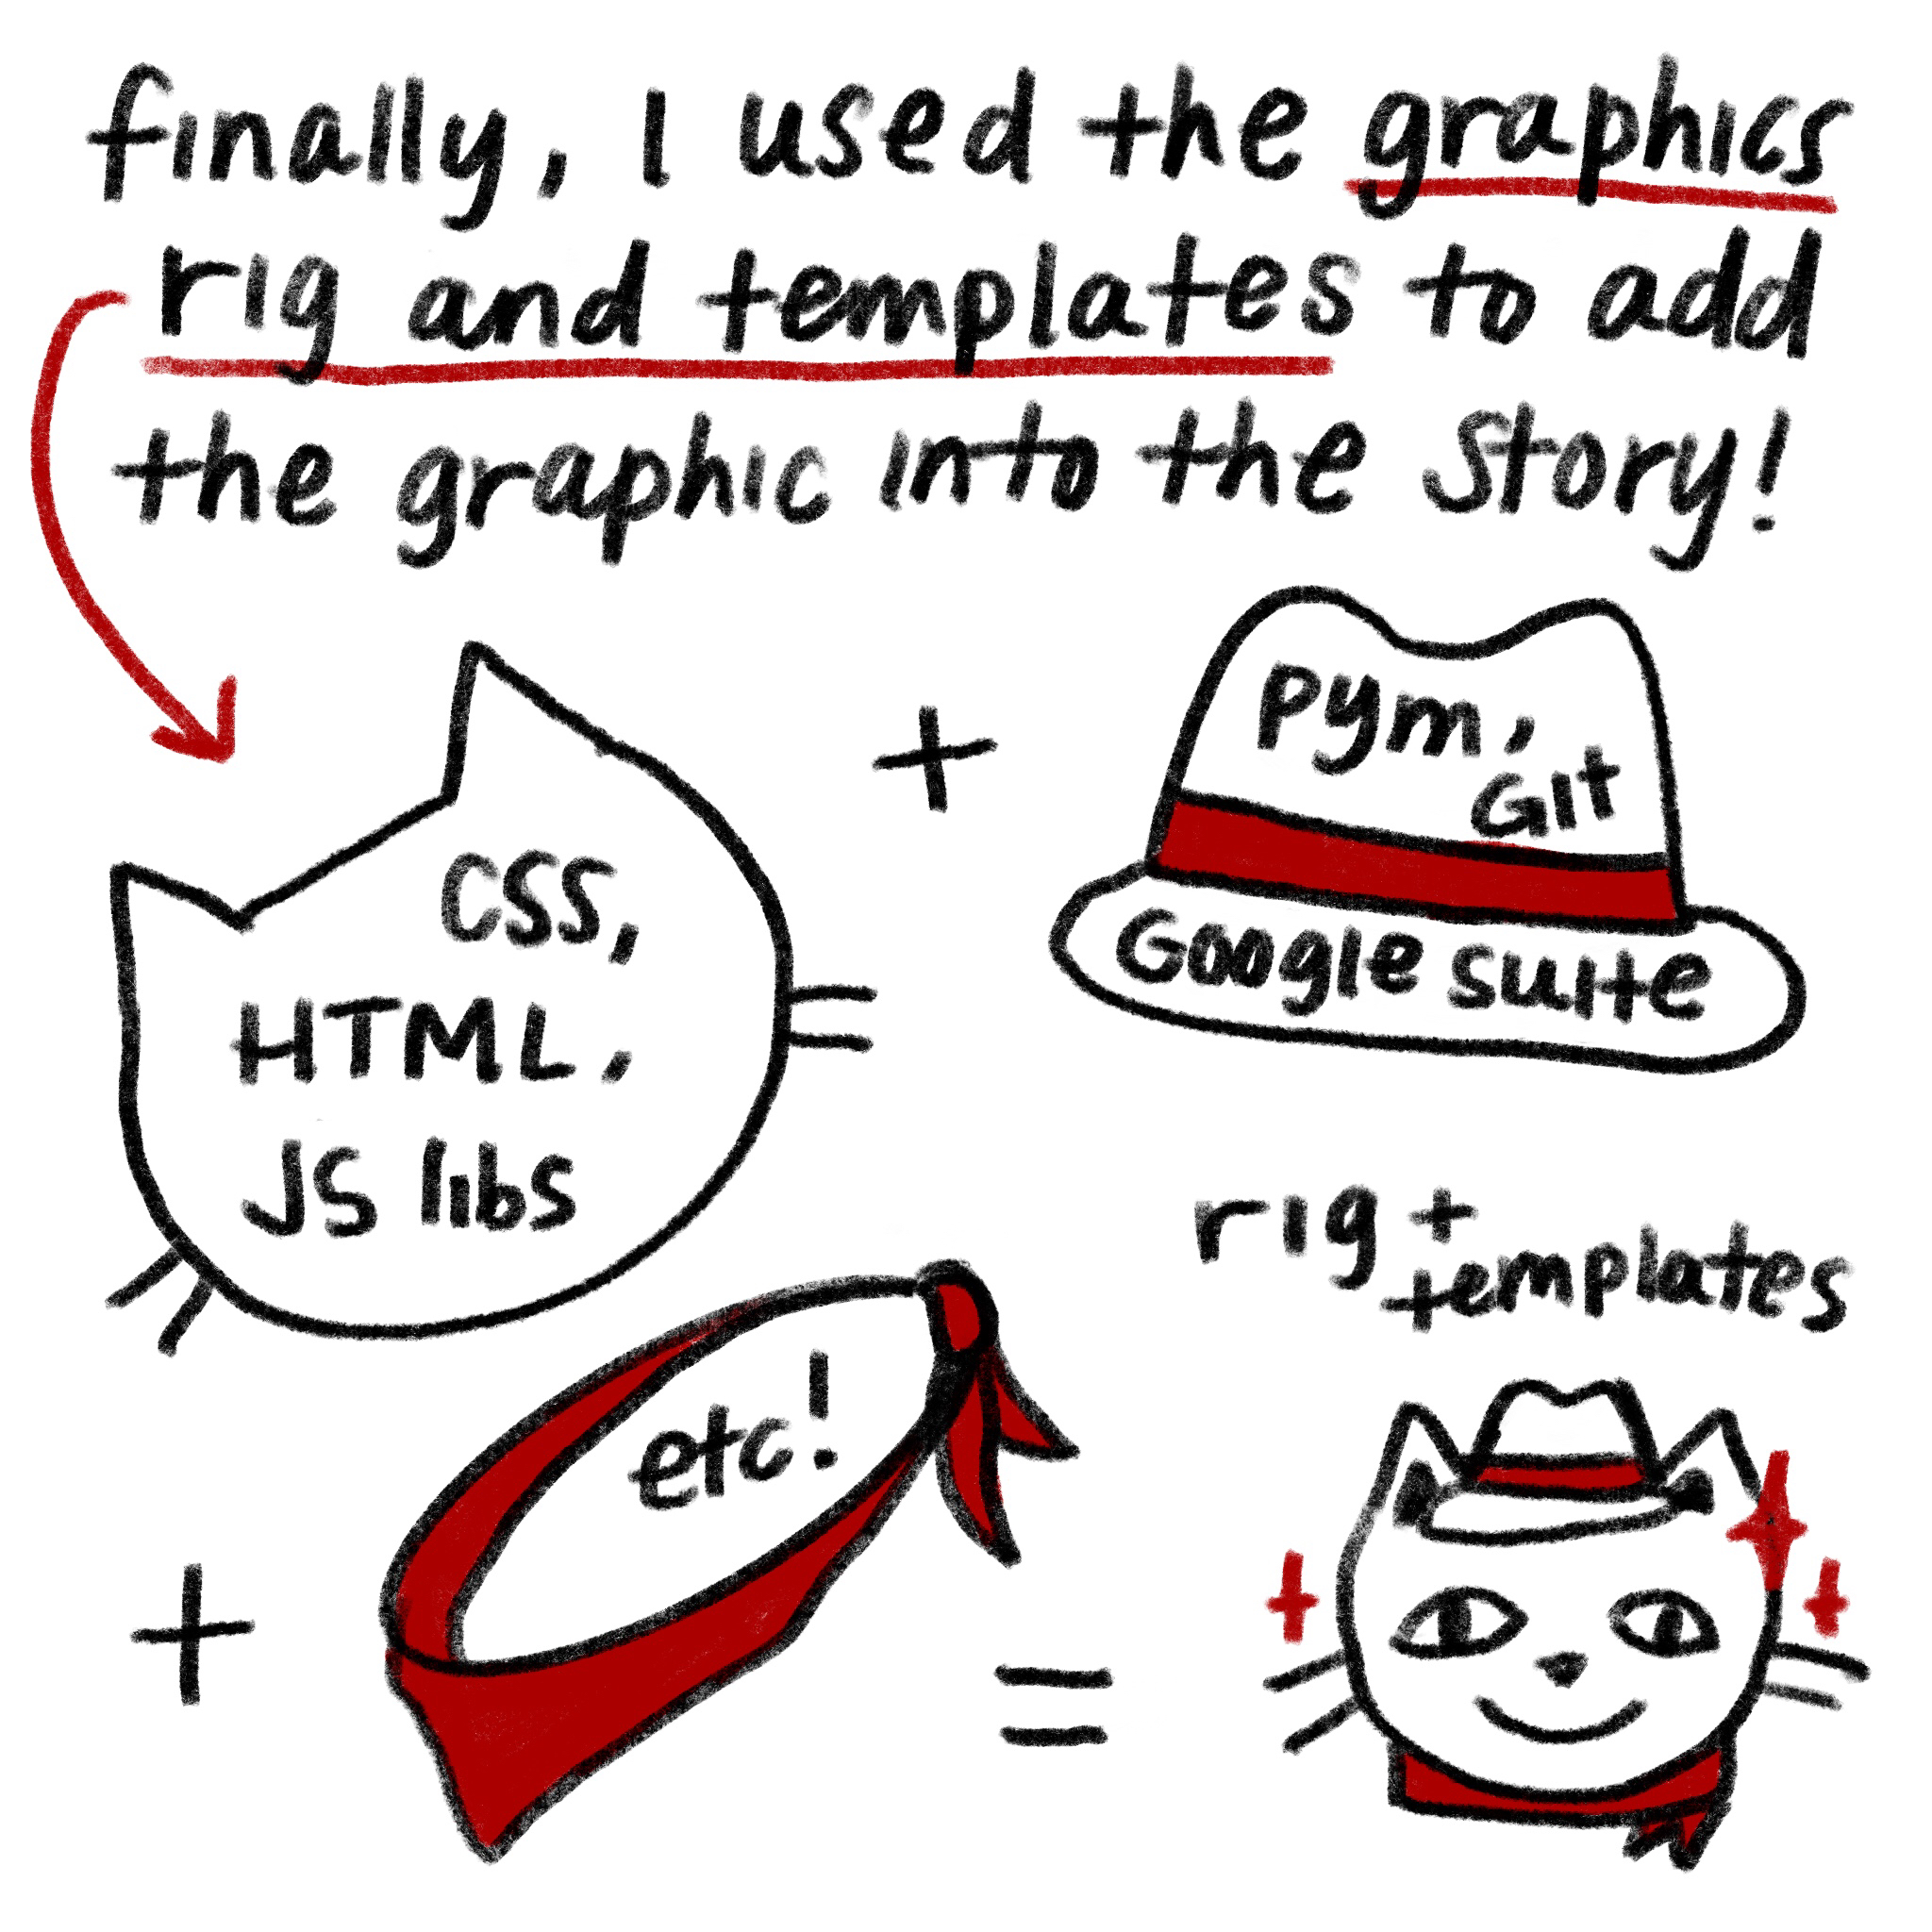 finally, I used the graphics
rig and templates to add
the graphic into the story!
+
CSS,
HTML,
JS libs
pym,
Git
Google suite
+
etc!
=
rig +
templates